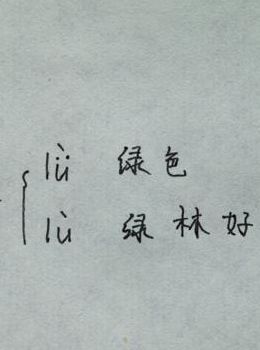 lǜ 绿色
lù 绿林好